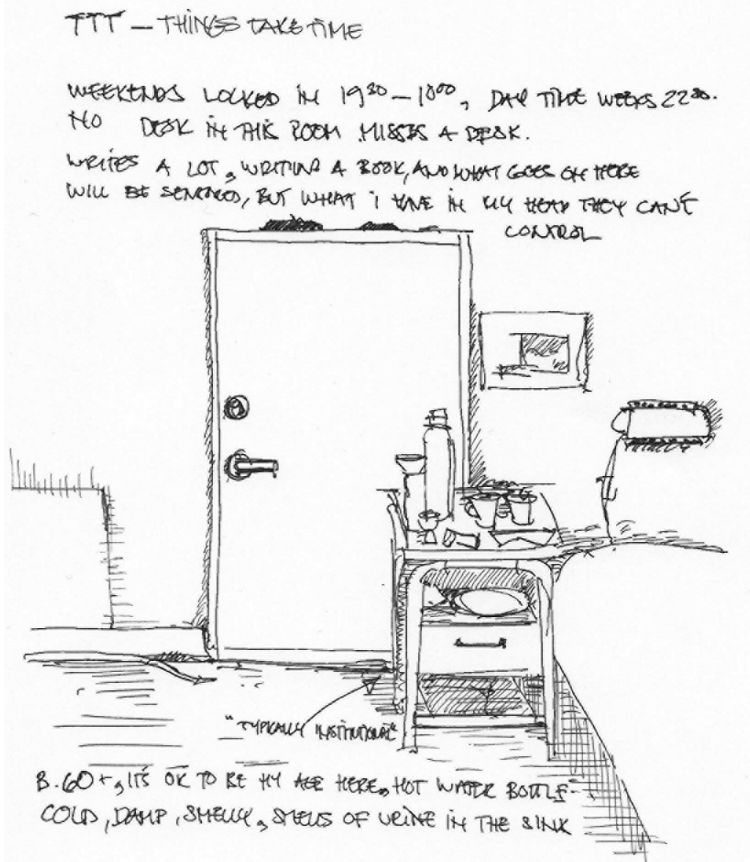 TTT – THINGS TAKE TIME
WEEKENDS LOCKED IN 19³⁰–10⁰⁰, DAY TIME WEEKS 22³⁰.
NO DESK IN THIS ROOM MISSES A DESK.
WRITES A LOT, WRITING A BOOK, AND WHAT GOES ON HERE
WILL BE SENSORED, BUT WHAT I HAVE IN MY HEAD THEY CAN'T
CONTROL
"TYPICALLY INSTITUTIONAL"
B. 60+, IT'S OK TO BE MY AGE HERE, HOT WATER BOTTLE-
COLD, DAMP, SMELLY, SMELLS OF URINE IN THE SINK